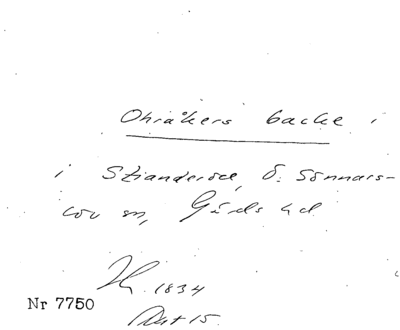 Ohråkers backe i
i Skianderöd, Ö. Sönnars-
löv sn, Gärds hd
1834
Nr 7750